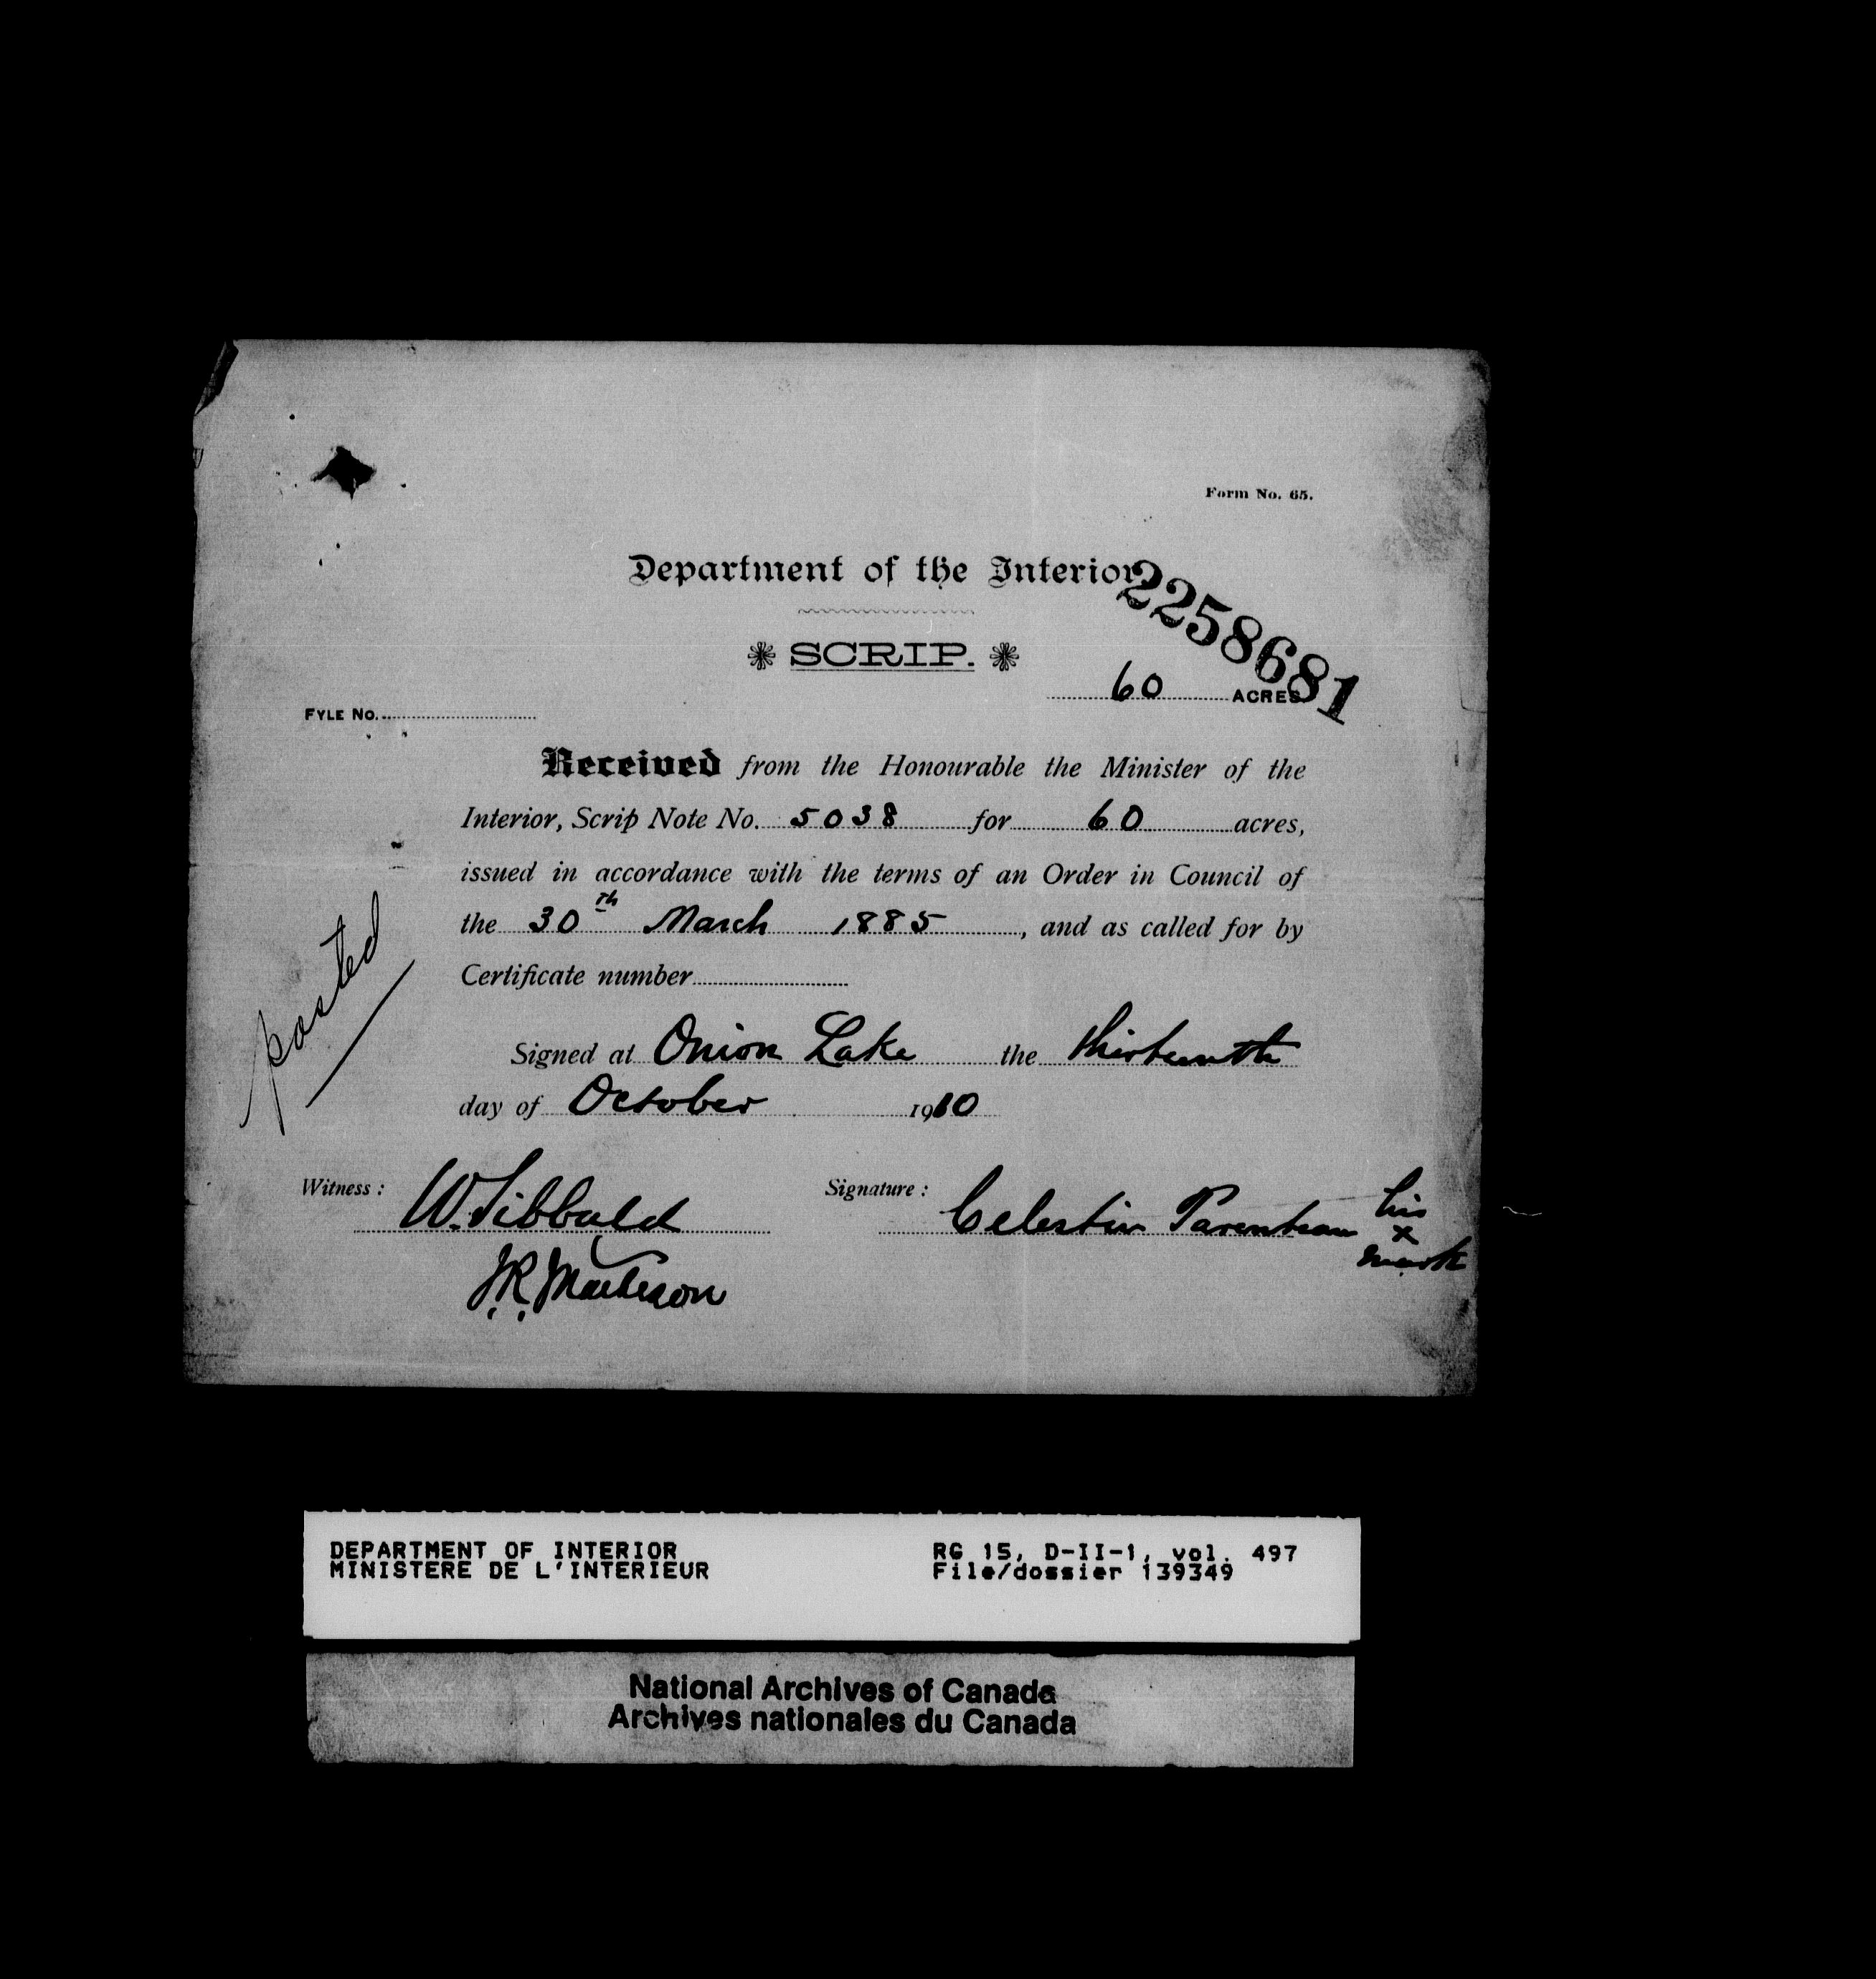 Form No. 65.
Department of the Interior
2258681
SCRIP.
60 ACRES
FYLE No.
Received from the Honourable the Minister of the
Interior, Scrip Note No. 5038 for 60 acres,
issued in accordance with the terms of an Order in Council of
the 30th March 1885, and as called for by
Certificate number
posted
Signed at Onion Lake the thirteenth
day of October 1910
Witness: W. Sibbald Signature: Celestin Parenteau his
x
mark
J.R. Matheson
DEPARTMENT OF INTERIOR RG 15, D-II-1, vol. 497
MINISTERE DE L'INTERIEUR File/dossier 139349
National Archives of Canada
Archives nationales du Canada